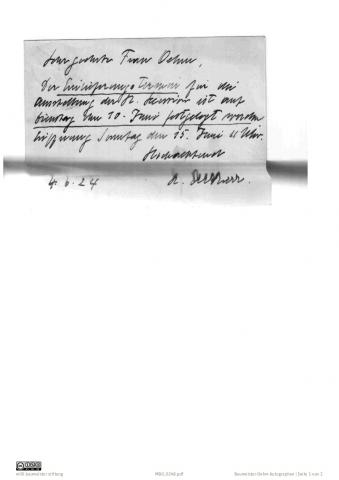 Sehr geehrte Frau Oehm,
Der Einlieferungs-Termin für die
Ausstellung der St. Sezession ist auf
Dienstag den 10. Juni festgelegt worden
Eröffnung Sonntag den 15. Juni 11 Uhr.
Hochachtend
4. 6. 24
willi baumeister stiftung
Baumeister-Oehm-Autographen | Seite 1 von 2